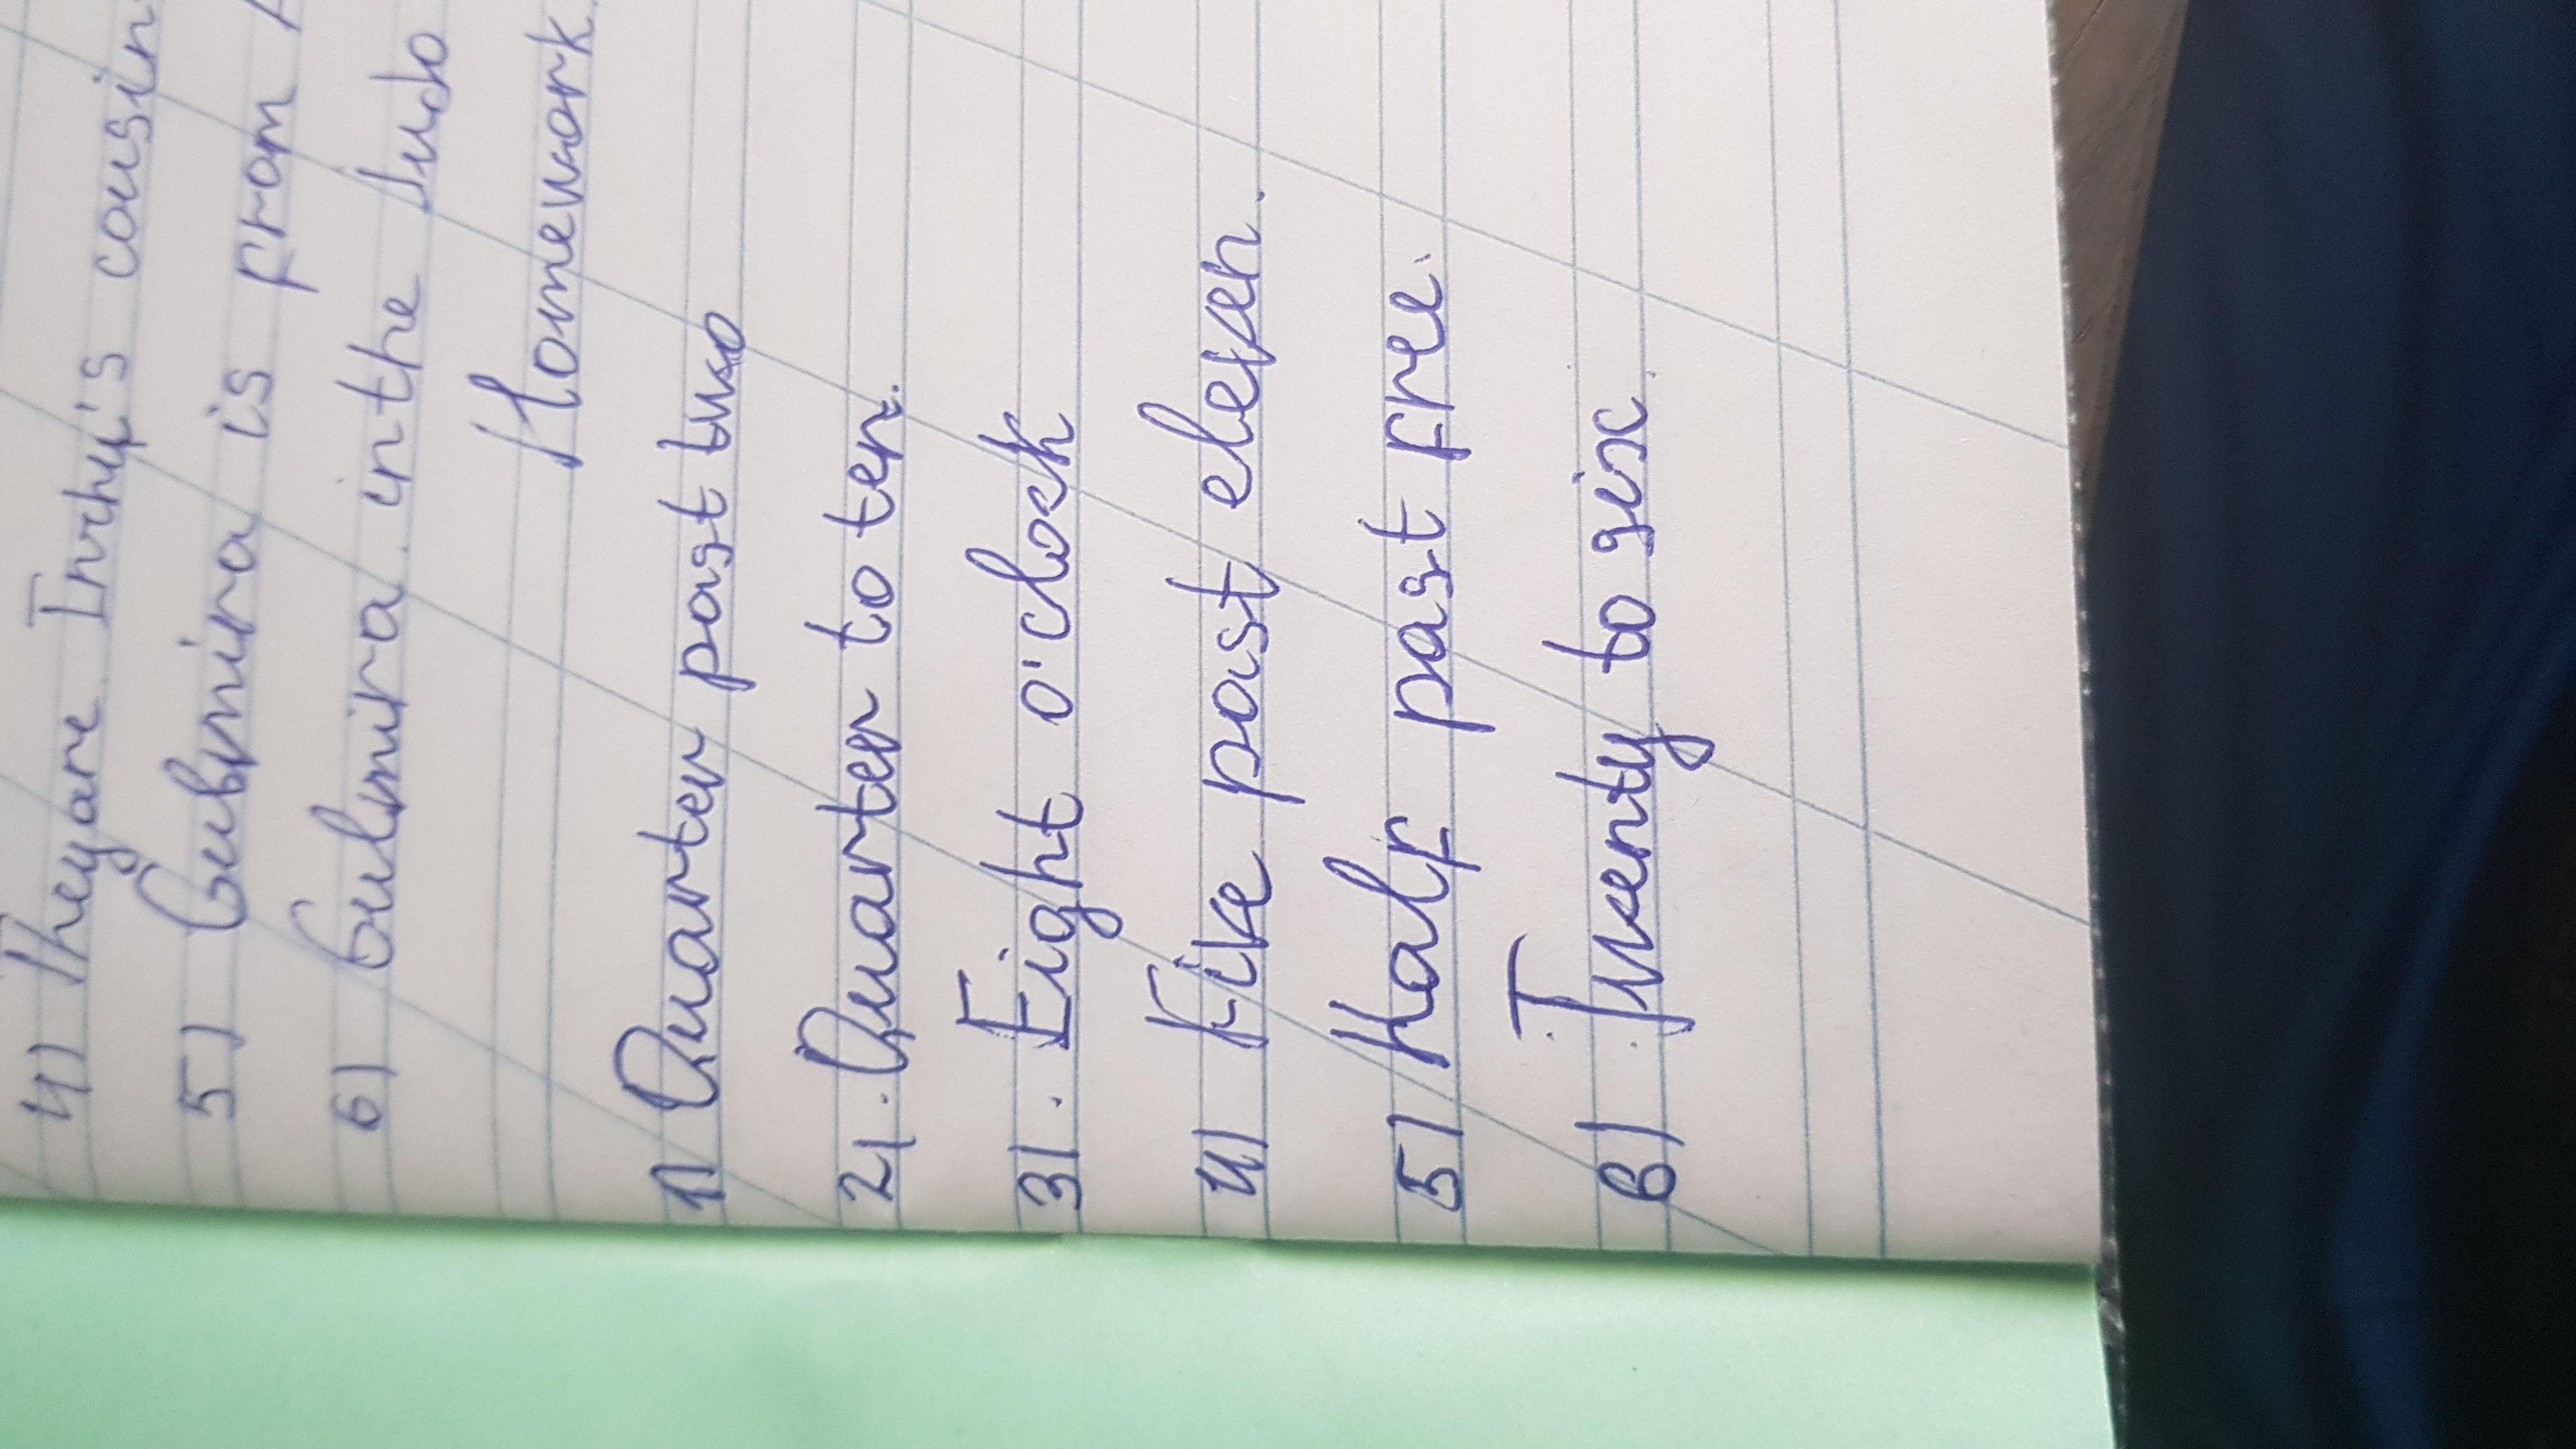 4) They are
cousin
5) Gulmira is from
6) Gulmira in the Judo
Homework.
1) Quarter past two
2). Quarter to ten.
3). Eight o'clock
4) Five past eleven.
5) Half past free.
6) Twenty to six.